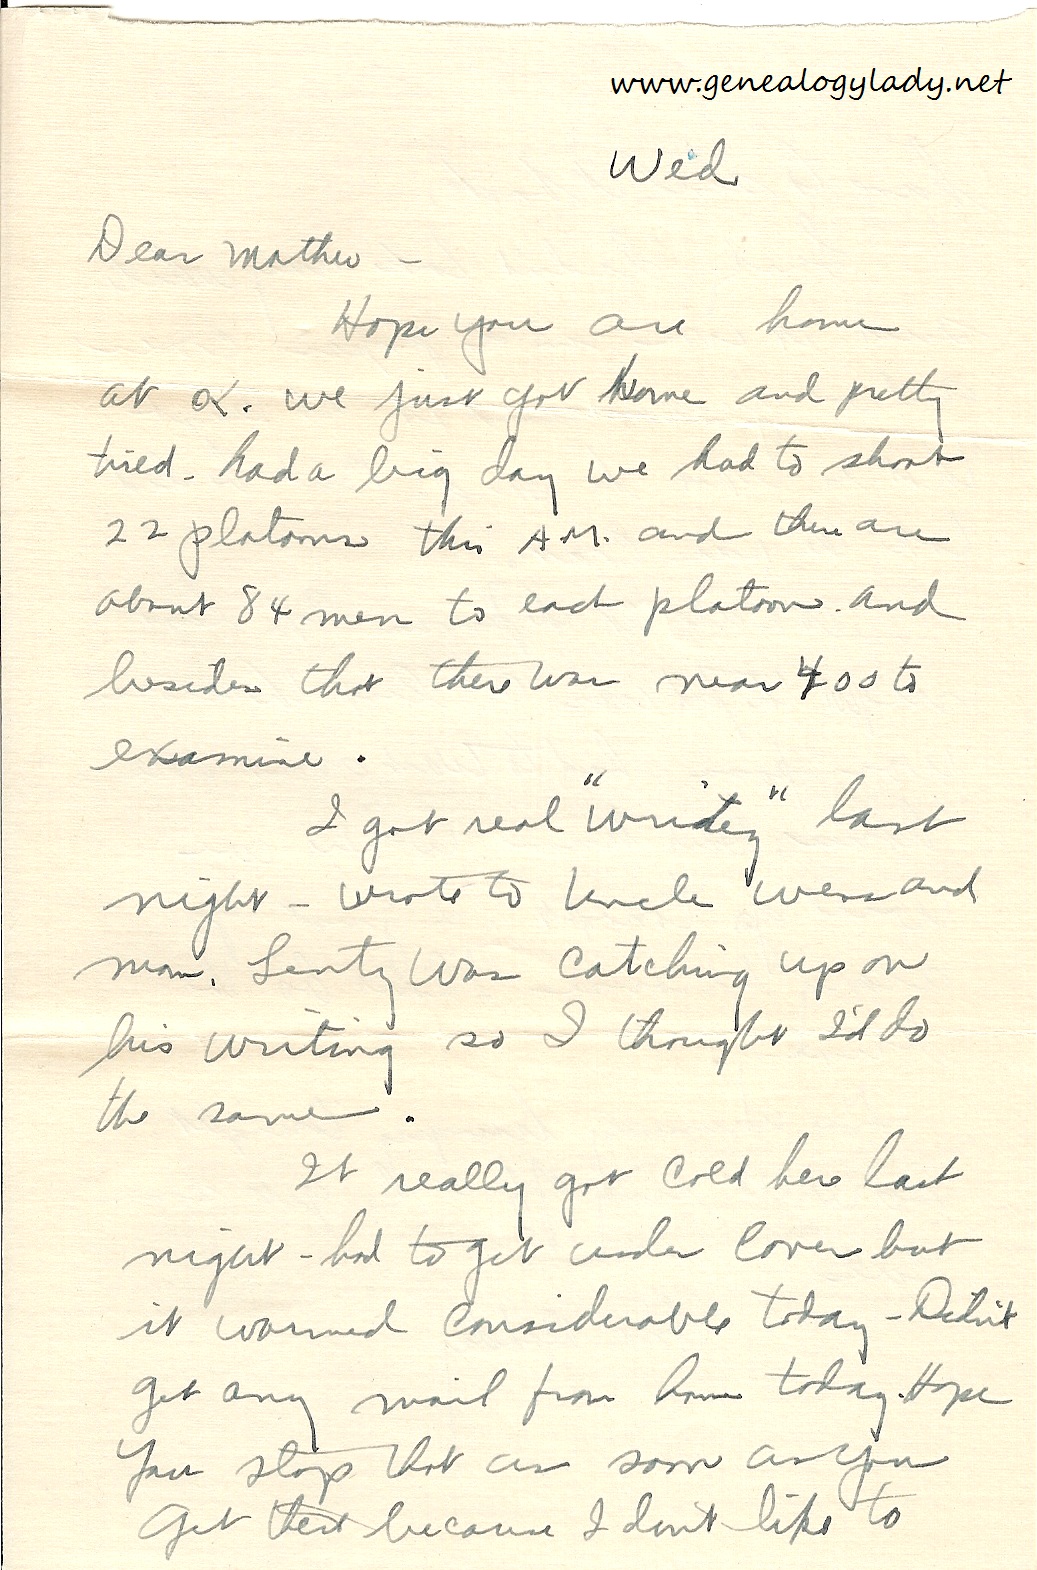 www.genealogylady.net
Wed
Dear Mother –
Hope you are home
at OK. we just got home and pretty
tired. had a big day we had to shoot
22 platoons this A.M. and there are
about 84 men to each platoon. and
besides that there was near 400 to
examine.
I got real "writey" last
night – wrote to Uncle Wers and
mom. Lentz was catching up on
his writing so I thought I'd do
the same.
It really got cold here last
night – had to get under cover but
it warmed considerable today – Didn't
get any mail from home today. Hope
you stop that as soon as you
get this because I don't like to